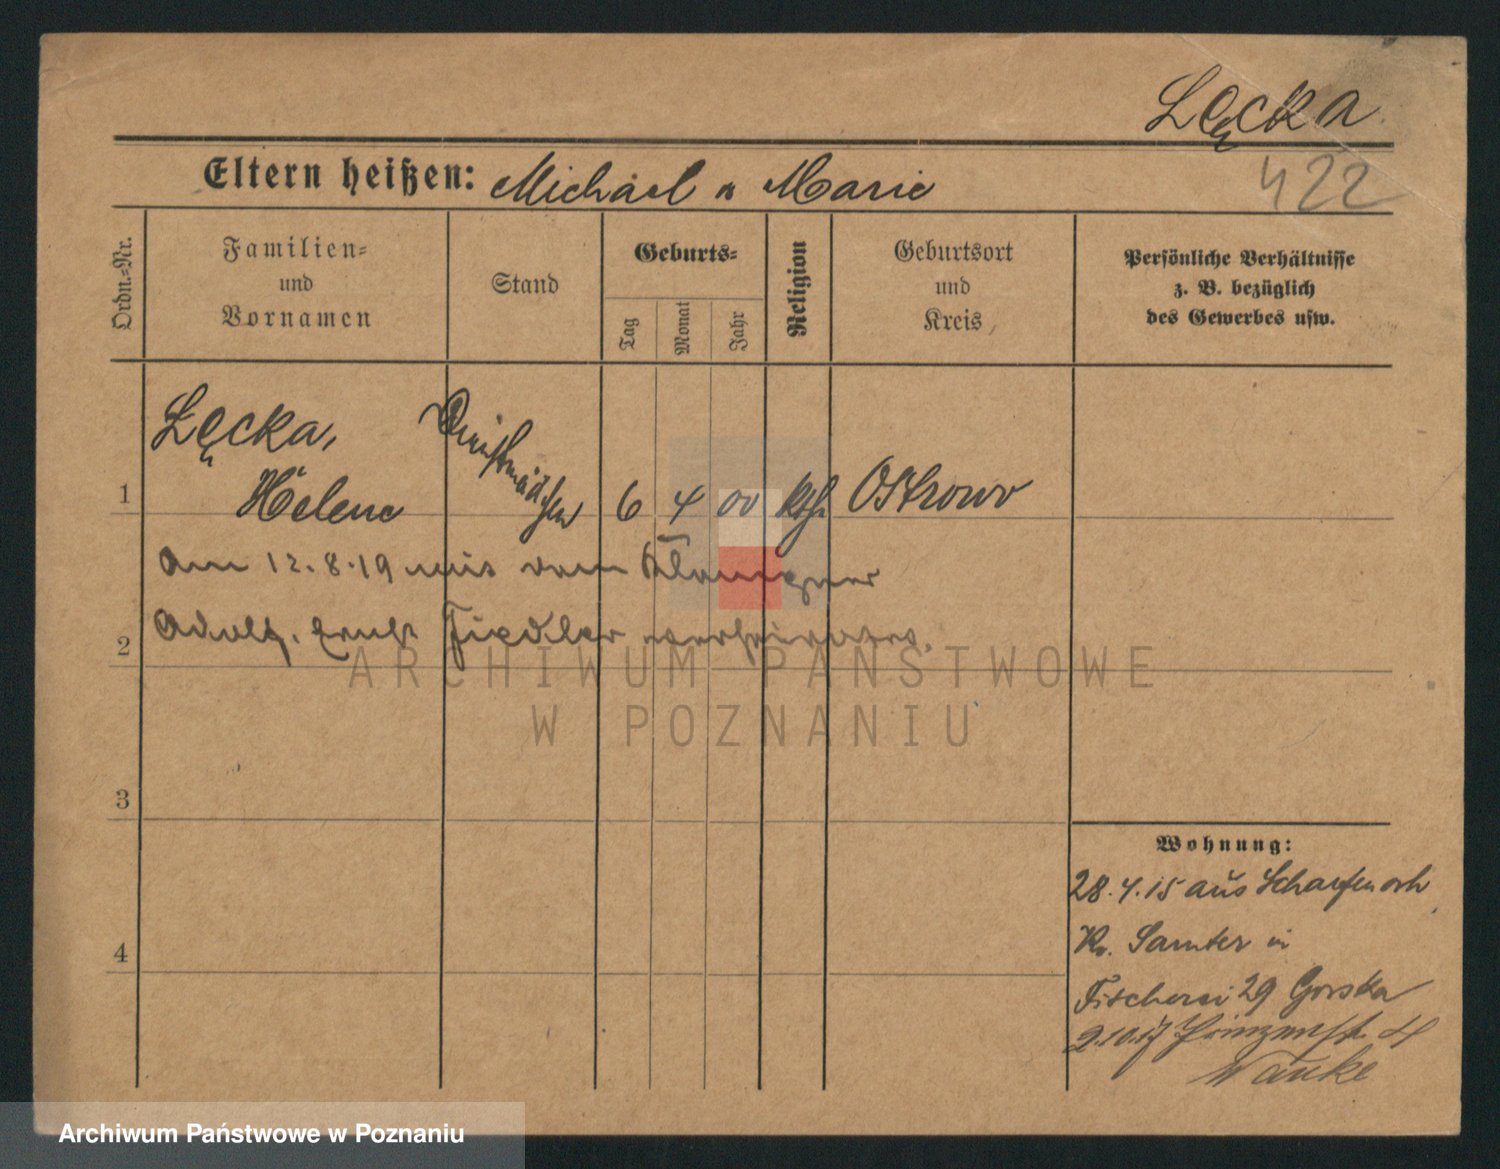 Łęcka
422
Eltern heißen: Michael u Marie
Ordn.-Nr.
Familien- und Vornamen
Stand
Geburts-
Tag
Monat
Jahr
Religion
Geburtsort und Kreis
Persönliche Verhältnisse
z. B. bezüglich
des Gewerbes usw.
1
Łęcka,
Helene
Dienstmädchen
6 4 00 kth. Ostrowo
Am 12.8.19 mit dem Klempner
2
Adolf, Ernst Fiedler verheiratet.
3
4
Wohnung:
28.4.15 aus Scharfenort
Kr. Samter in
Fischerei 29 Gorska
2.10.17 Prinzenstr. 4
ARCHIWUM PAŃSTWOWE
W POZNANIU
Archiwum Państwowe w Poznaniu